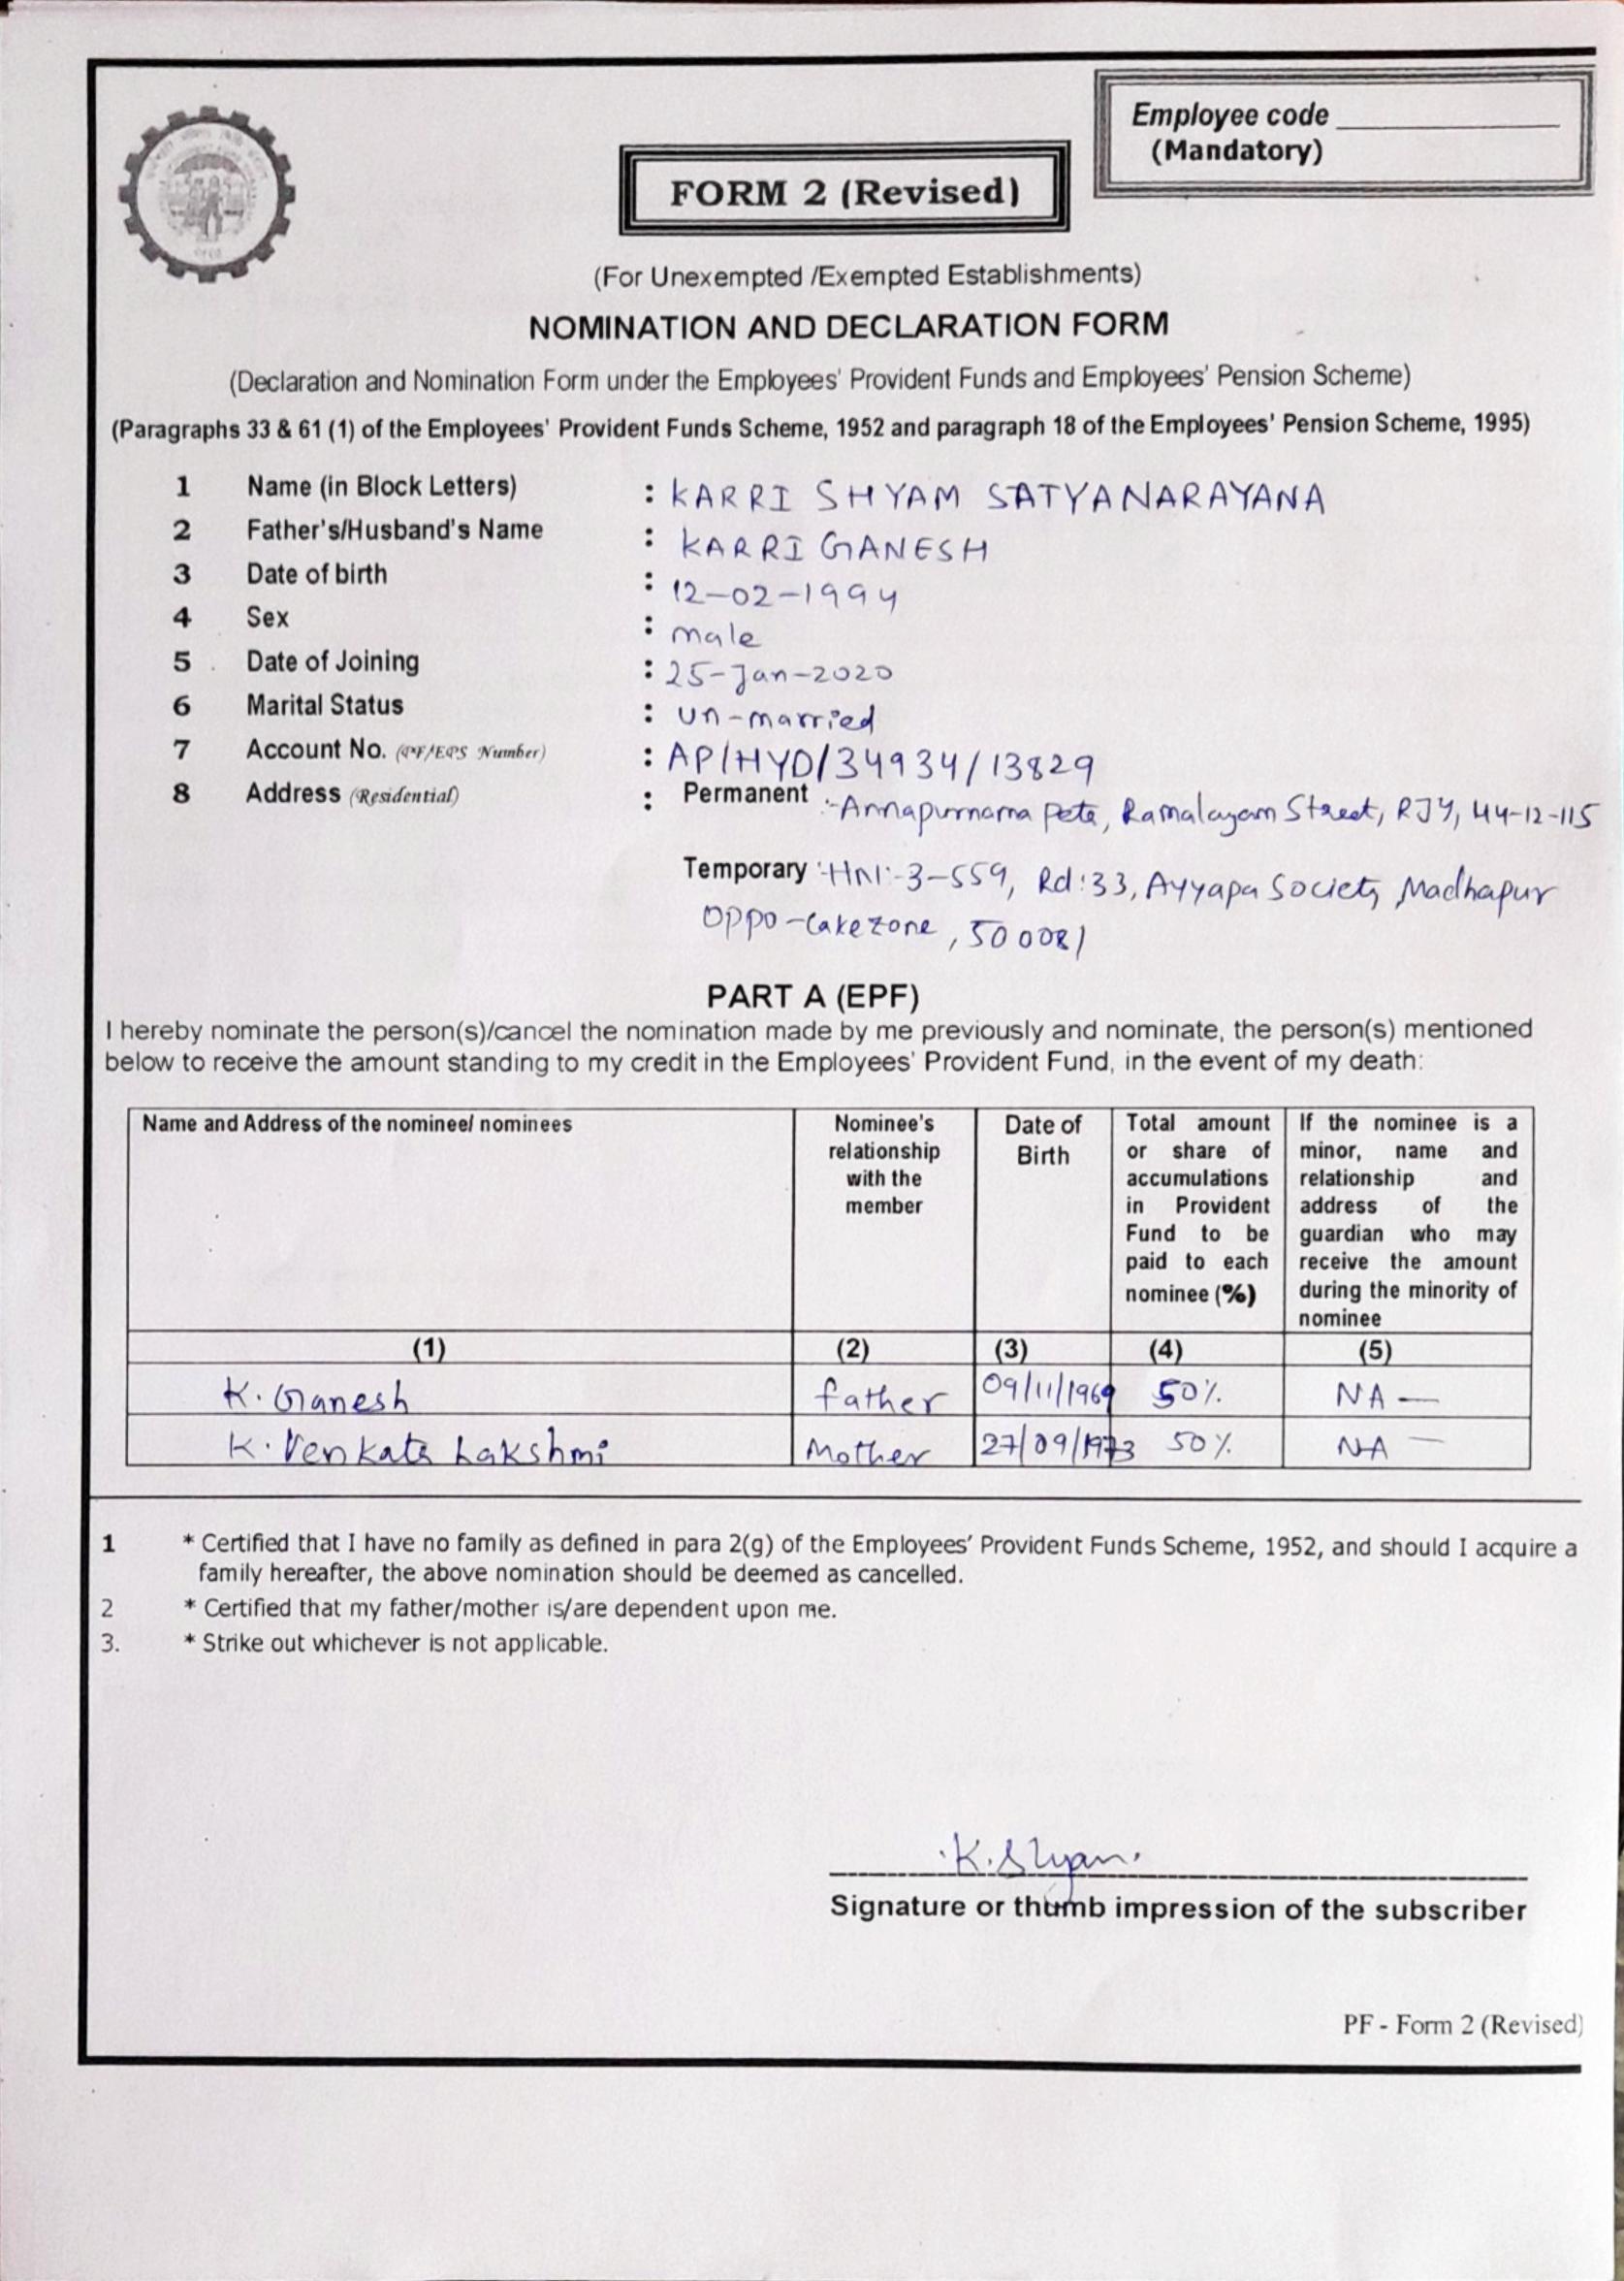 Employee code
(Mandatory)
FORM 2 (Revised)
(For Unexempted /Exempted Establishments)
NOMINATION AND DECLARATION FORM
(Declaration and Nomination Form under the Employees' Provident Funds and Employees' Pension Scheme)
(Paragraphs 33 & 61 (1) of the Employees' Provident Funds Scheme, 1952 and paragraph 18 of the Employees' Pension Scheme, 1995)
1 Name (in Block Letters) : KARRI SHYAM SATYANARAYANA
2 Father's/Husband's Name : KARRI GANESH
3 Date of birth : 12-02-1994
4 Sex : male
5 Date of Joining : 25-Jan-2020
6 Marital Status : un-married
7 Account No. (PF/EPS Number) : AP/HYD/34934/13829
8 Address (Residential) : Permanent :- Annapurnama peta, Ramalayam Street, RJY, 44-12-115
Temporary :- 3-559, Rd:33, Ayyapa Society Madhapur
Oppo-Cakezone, 500081
PART A (EPF)
I hereby nominate the person(s)/cancel the nomination made by me previously and nominate, the person(s) mentioned
below to receive the amount standing to my credit in the Employees' Provident Fund, in the event of my death:
Name and Address of the nominee/ nominees
Nominee's
relationship
with the
member
Date of
Birth
Total amount
or share of
accumulations
in Provident
Fund to be
paid to each
nominee (%)
If the nominee is a
minor, name and
relationship and
address of the
guardian who may
receive the amount
during the minority of
nominee
(1) (2) (3) (4) (5)
K. Ganesh father 09/11/1969 50% NA —
K. Venkata Lakshmi Mother 27/09/1973 50% NA —
1 * Certified that I have no family as defined in para 2(g) of the Employees' Provident Funds Scheme, 1952, and should I acquire a
family hereafter, the above nomination should be deemed as cancelled.
2 * Certified that my father/mother is/are dependent upon me.
3. * Strike out whichever is not applicable.
K. Shyam.
Signature or thumb impression of the subscriber
PF - Form 2 (Revised)